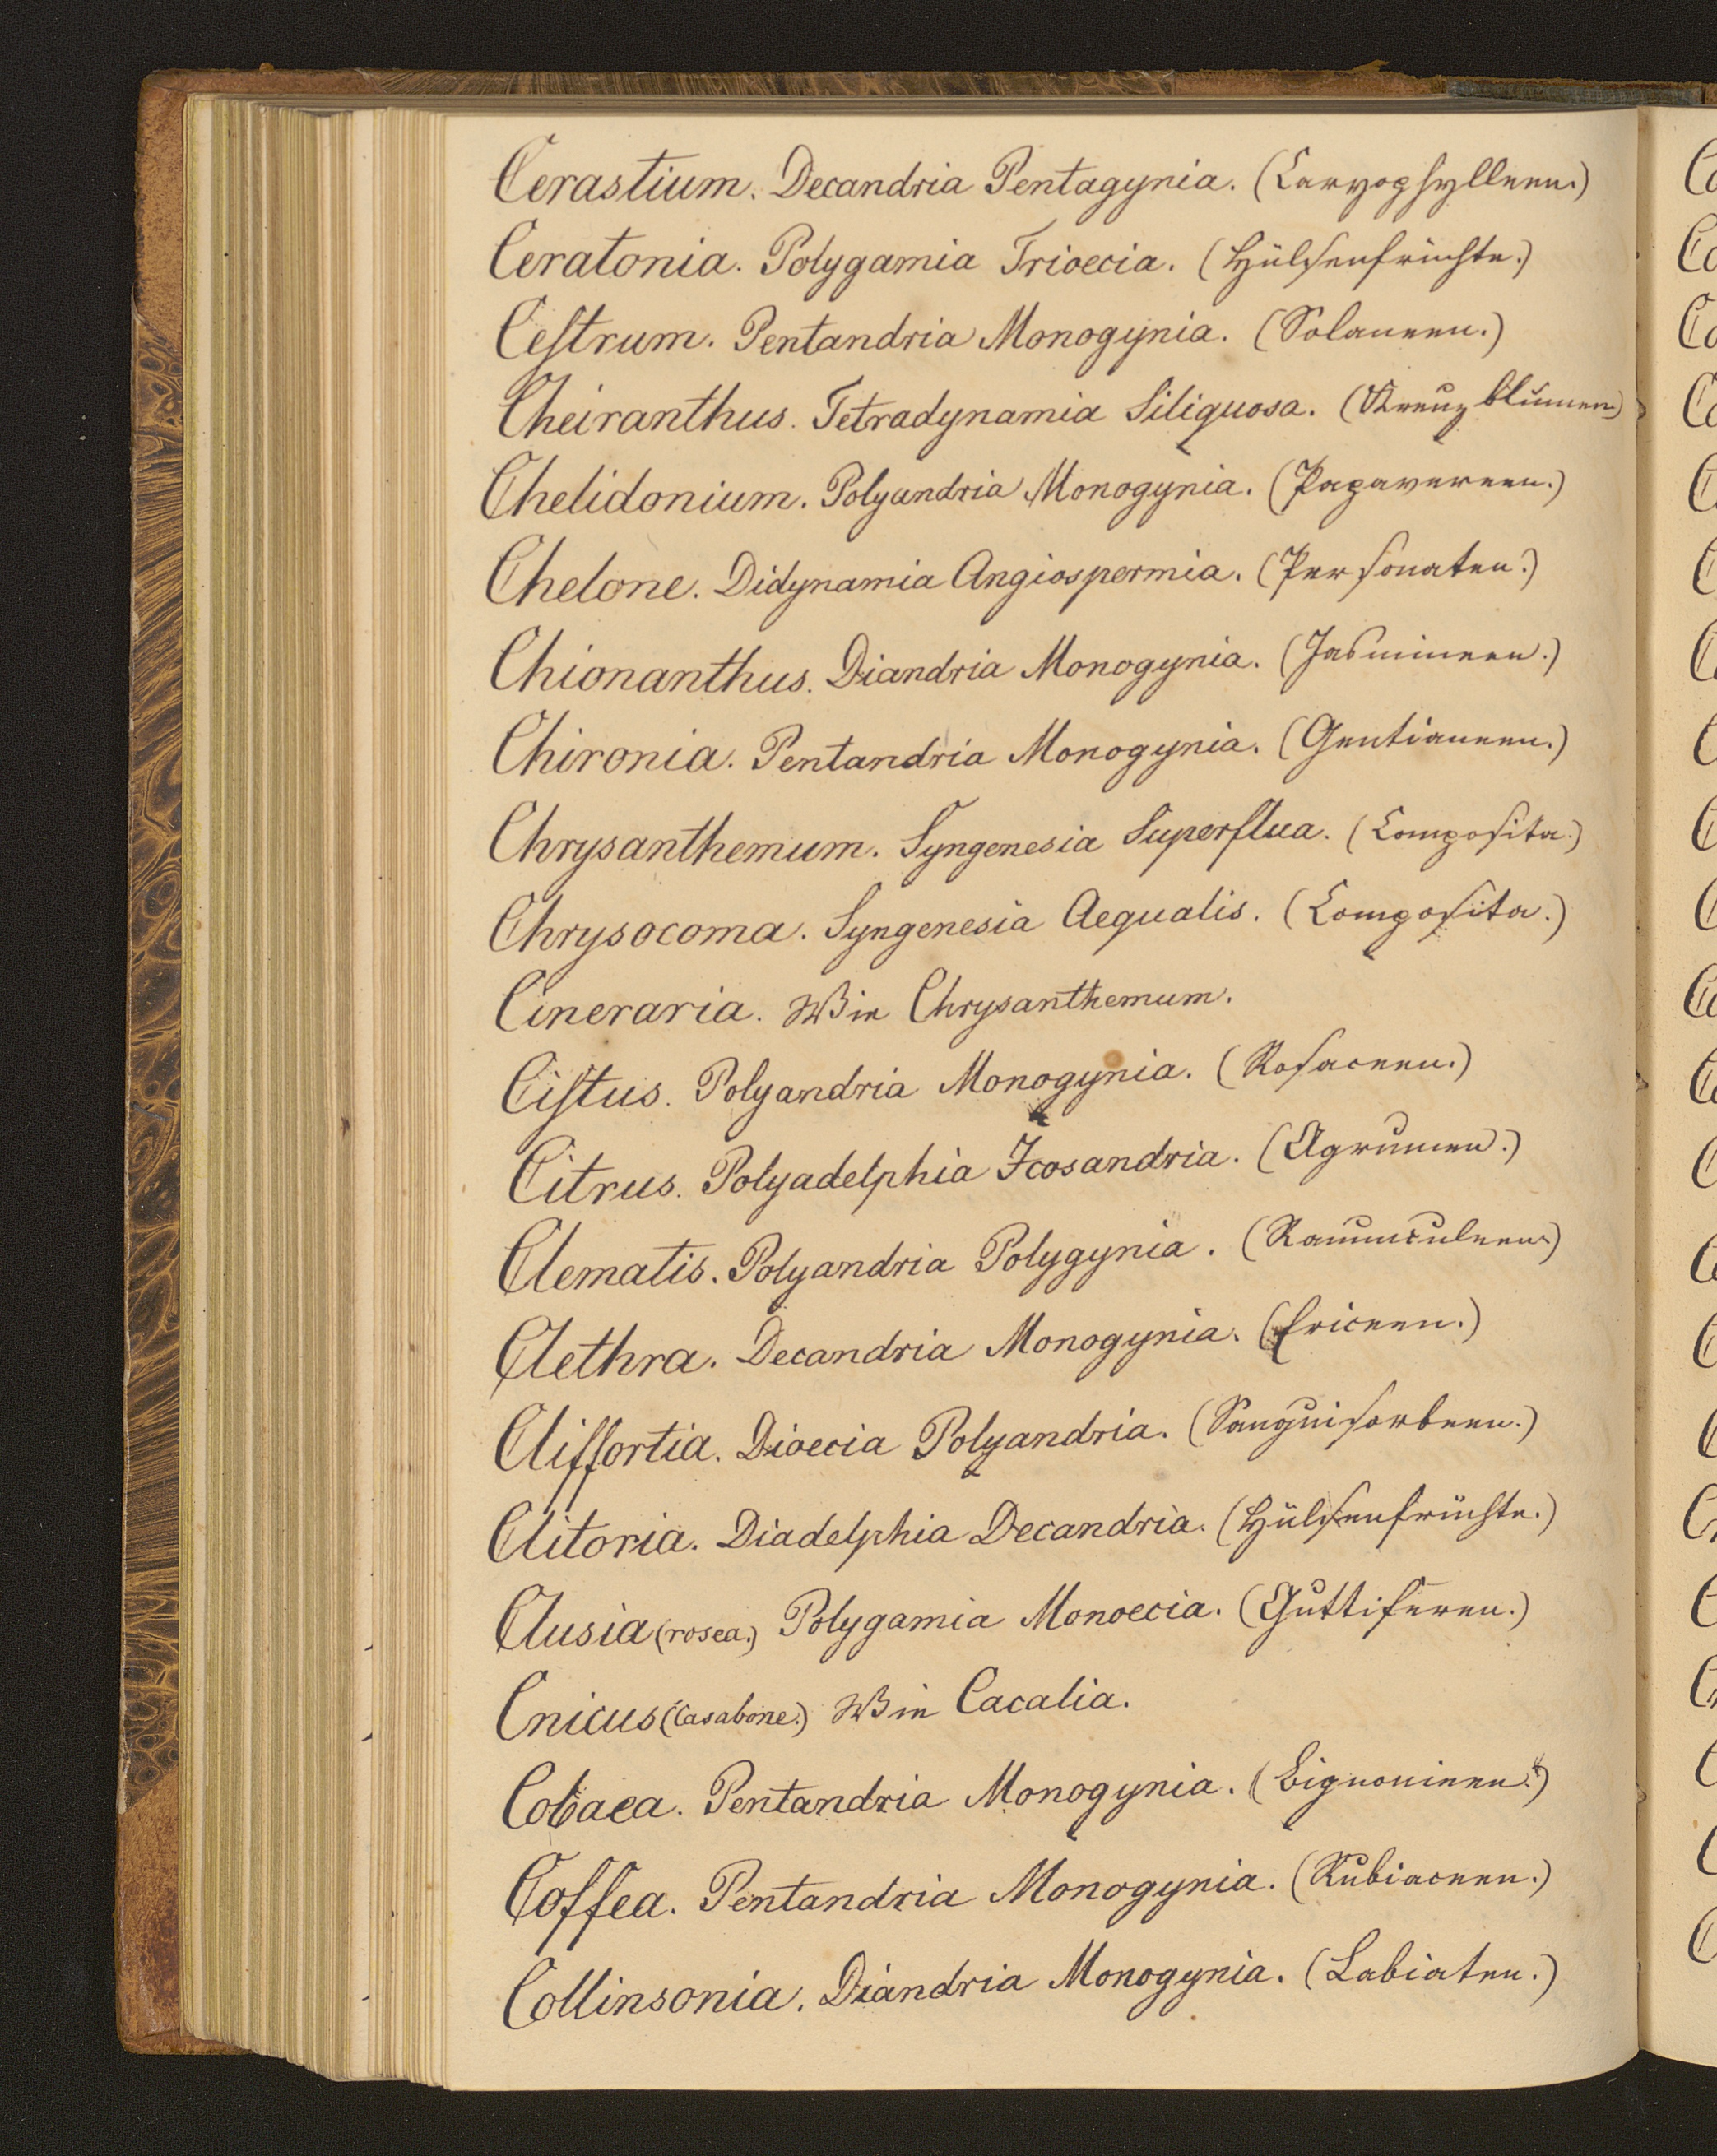 Cerastium. Decandria Pentagynia. (Caryophylleen.)
Ceratonia. Polygamia Trioecia. (Hülsenfrüchte.)
Cestrum. Pentandria Monogynia. (Solaneen.)
Cheiranthus. Tetradynamia Siliquosa. (Kreuzblumen)
Chelidonium. Polyandria Monogynia. (Papavereen.)
Chelone. Didynamia Angiospermia. (Personaten.)
Chionanthus. Diandria Monogynia. (Jasmineen.)
Chironia. Pentandria Monogynia. (Gentianeen.)
Chrysanthemum. Syngenesia Superflua. (Composita.)
Chrysocoma. Syngenesia Aequalis. (Composita.)
Cineraria. Wie Chrysanthemum.
Cistus. Polyandria Monogynia. (Rosaceen.)
Citrus. Polyadelphia Icosandria. (Agrumen.)
Clematis. Polyandria Polygynia. (Ranunculeen)
Clethra. Decandria Monogynia. (Ericeen.)
Cliffortia. Dioecia Polyandria. (Sanguisorbeen.)
Clitoria. Diadelphia Decandria. (Hülsenfrüchte.)
Clusia (rosea.) Polygamia Monoecia. (Guttiferen.)
Cnicus (Casabone.) Wie Cacalia.
Cobaea. Pentandria Monogynia. (Bignonieen.)
Coffea. Pentandria Monogynia. (Rubiaceen.)
Collinsonia. Diandria Monogynia. (Labiaten.)